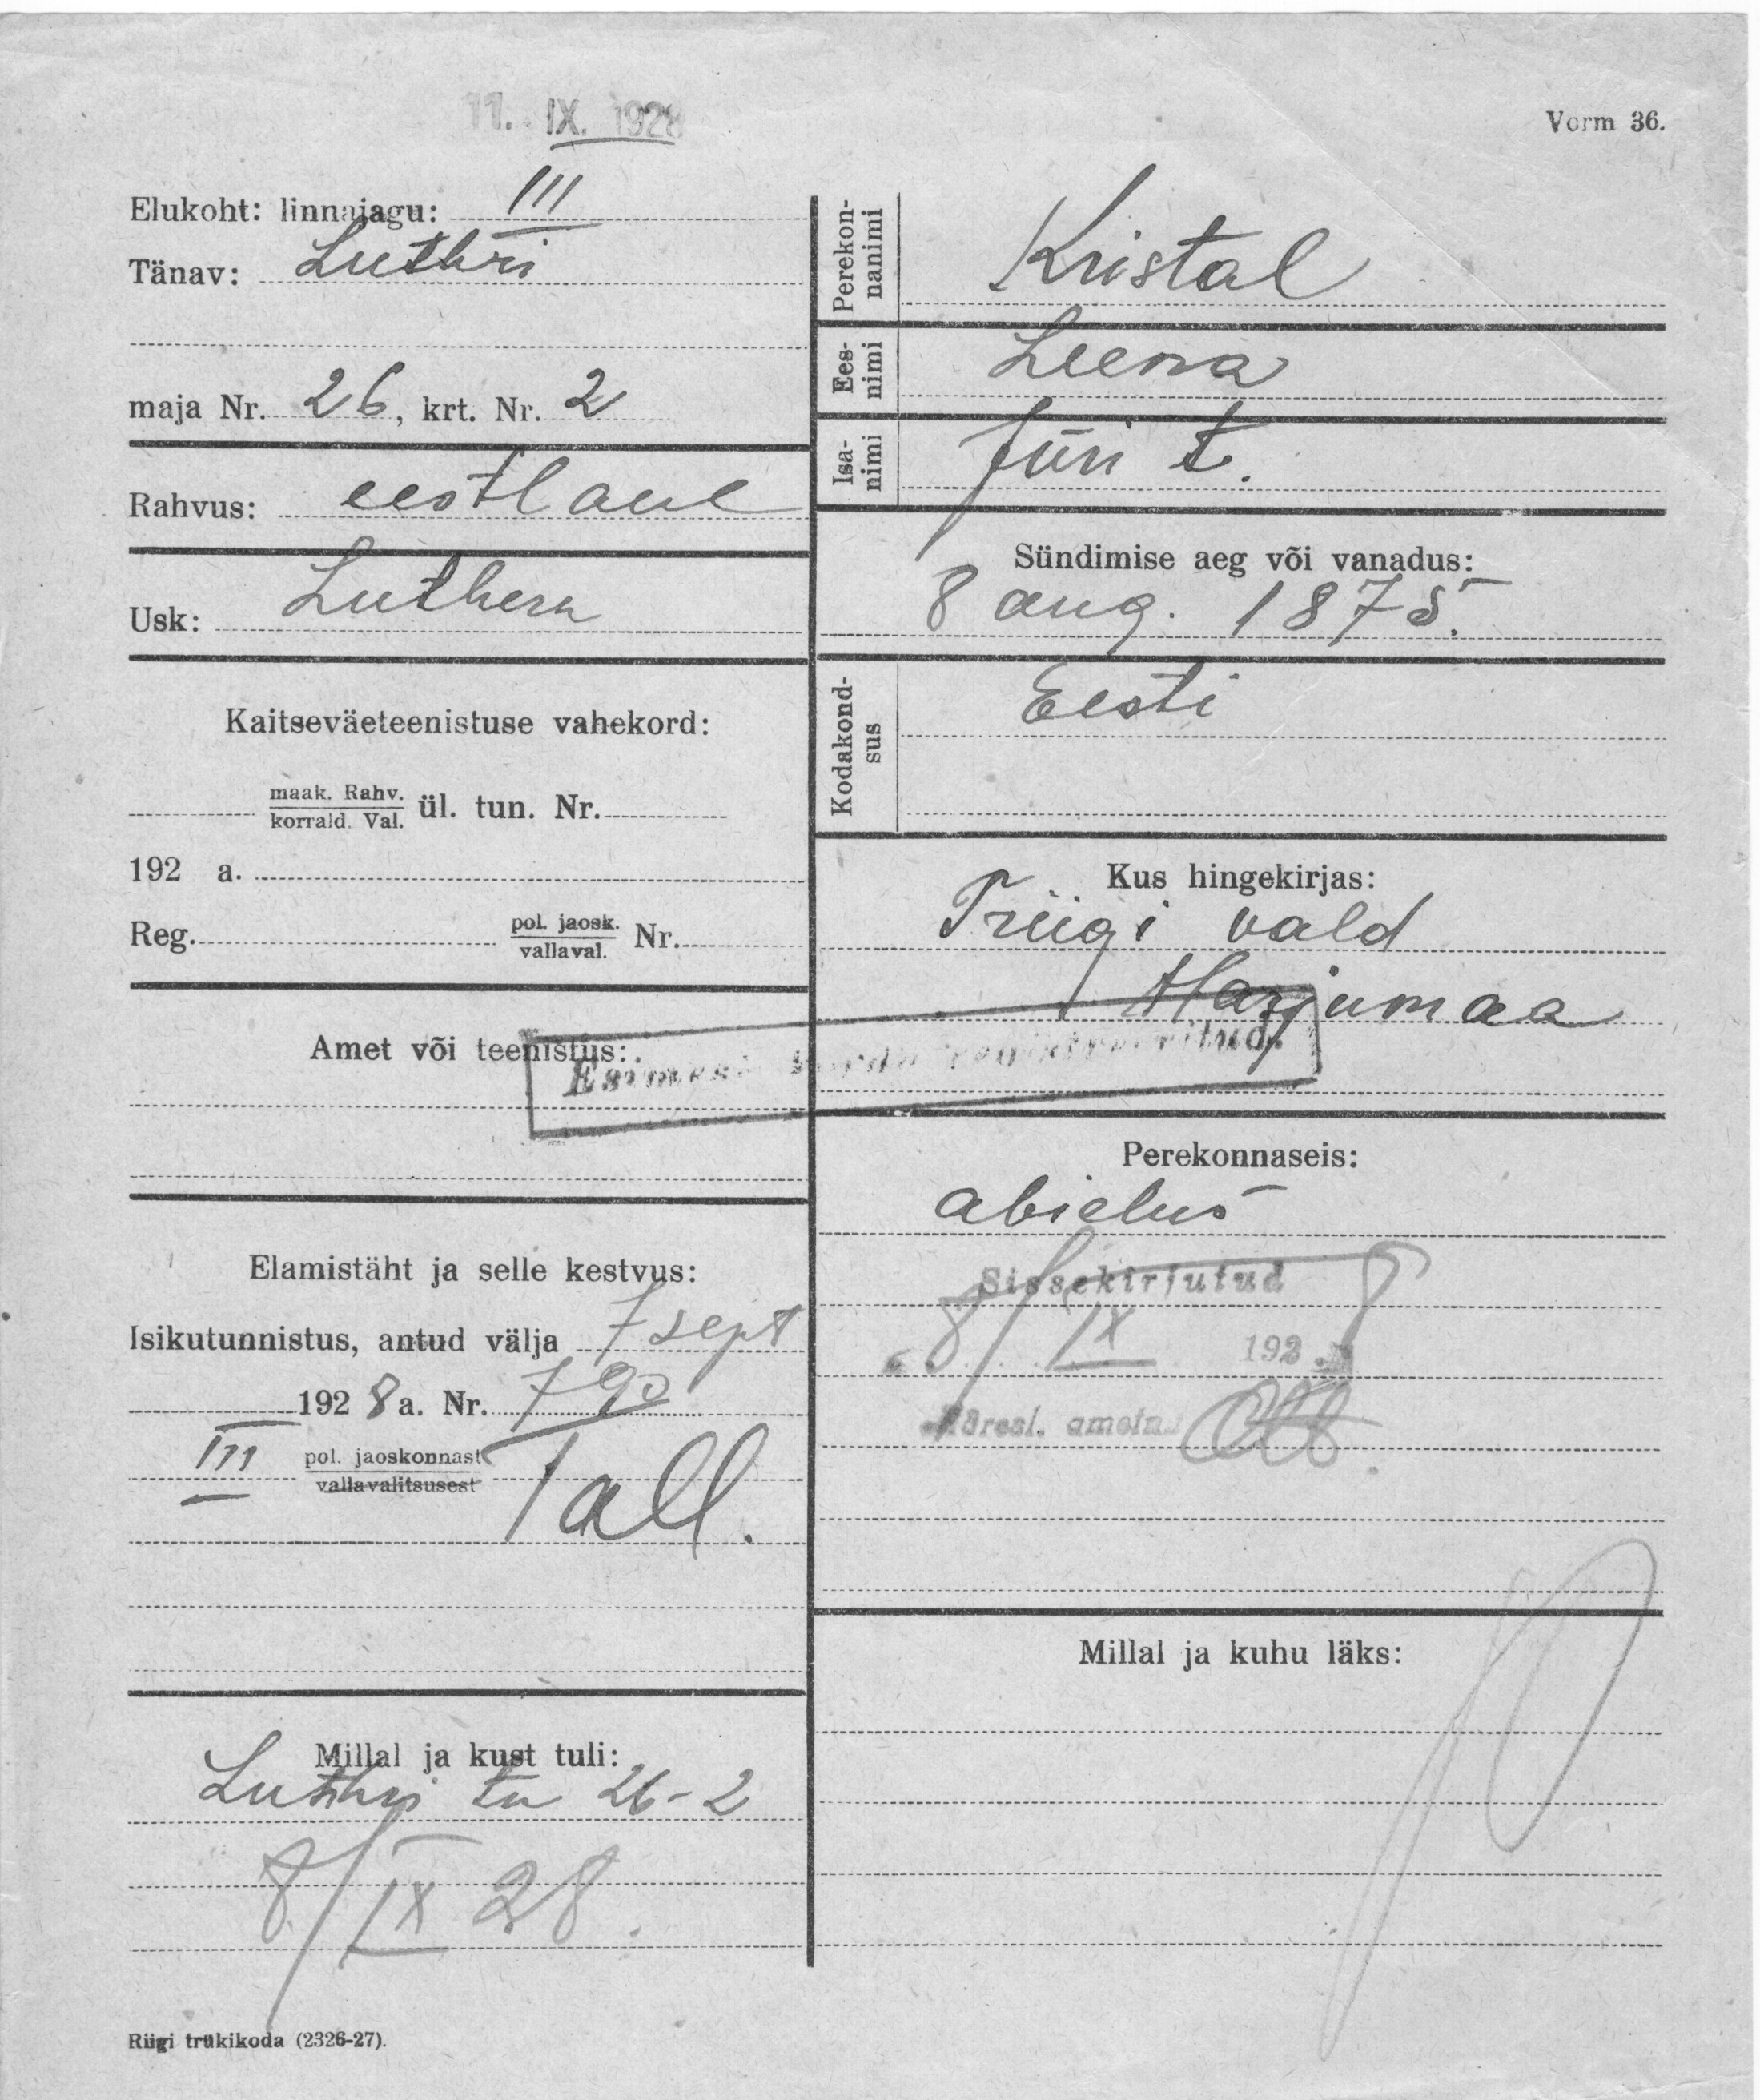 11. IX. 1928
Vorm 36.
Elukoht: linnajagu: III
Tänav: Luthri
maja Nr. 26, krt. Nr. 2
Rahvus: eestlane
Usk: Luthern
Kaitseväeteenistuse vahekord:
maak. Rahv.
korrald. Val. ül. tun. Nr.
192 a.
Reg. pol. jaosk. Nr.
vallaval.
Amet või teenistus:
Elamistäht ja selle kestvus:
Isikutunnistus, antud välja 7 sept
1928 a. Nr. 790
III pol. jaoskonnast Tall.
vallavalitsusest
Millal ja kust tuli:
Luthri tn 26-2
8/IX 28.
Perekon-
nanimi
Kristal
Ees-
nimi
Leena
Isa-
nimi
Jüri t.
Sündimise aeg või vanadus:
8 aug. 1875.
Kodakond-
sus
Eesti
Kus hingekirjas:
Triigi vald
Harjumaa
Esimest korda registreeritud.
Perekonnaseis:
abielus
Sissekirjutud
8/IX 1928
Adresl. ametn.
Millal ja kuhu läks:
Riigi trükikoda (2326-27).